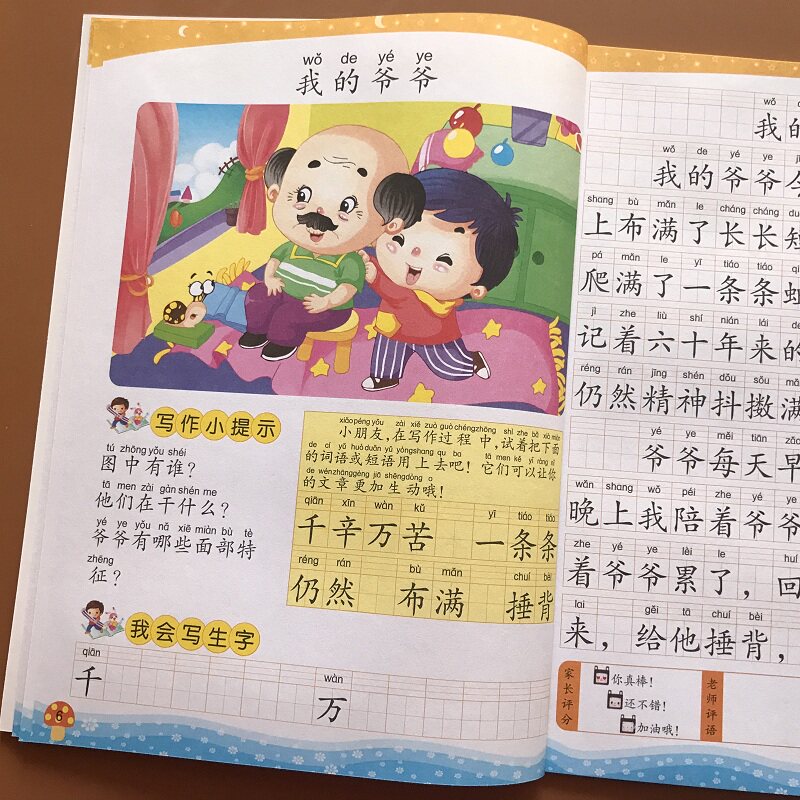 wǒ de yé ye
我的爷爷
写作小提示
tú zhōng yǒu shéi
图中有谁？
tā men zài gàn shén me
他们在干什么？
yé ye yǒu nǎ xiē miàn bù tè
爷爷有哪些面部特
zhēng
征？
小朋友，在写作过程中，试着把下面
的词语或短语用上去吧！它们可以让你
的文章更加生动哦！
qiān xīn wàn kǔ yì tiáo tiáo
千辛万苦 一条条
réng rán bù mǎn chuí bèi
仍然 布满 捶背
我会写生字
qiān wàn
千 万
6
wǒ de
我的
wǒ de yé ye
我的爷爷
shang bù mǎn le cháng cháng
上布满了长长短
pá mǎn le yì tiáo tiáo
爬满了一条条
jì zhe liù shí nián lái de
记着六十年来的
réng rán jīng shén dǒu sǒu mǎn
仍然精神抖擞满
yé ye měi tiān zǎo
爷爷每天早
wǎn shang wǒ péi zhe yé ye
晚上我陪着爷爷
zhe yé ye lèi le
着爷爷累了，回
lai gěi tā chuí bèi
来，给他捶背，
家长评分
你真棒！
还不错！
加油哦！
老师评语